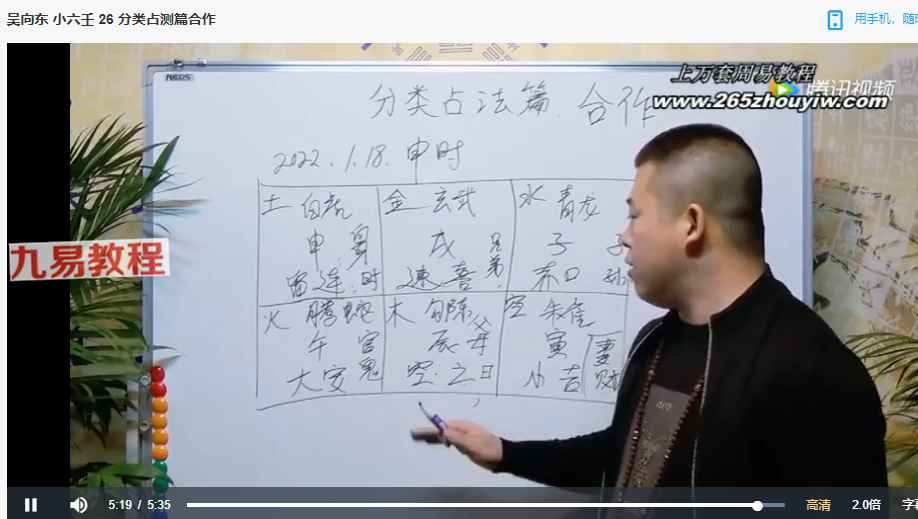 吴向东 小六壬 26 分类占测篇合作
用手机，随时
上万套周易教程
腾讯视频
www.265zhouyiw.com
分类占法篇 合作
2022.1.18. 申时
土 白虎 金 玄武 水 青龙
申 身 戌 兄弟 子 子孙
留连.时 速喜 赤口
九易教程
火 腾蛇 木 勾陈 空 朱雀
午 官鬼 辰 父母 寅 妻财
大安 空亡.日 小吉
5:19 / 5:35
高清
2.0倍